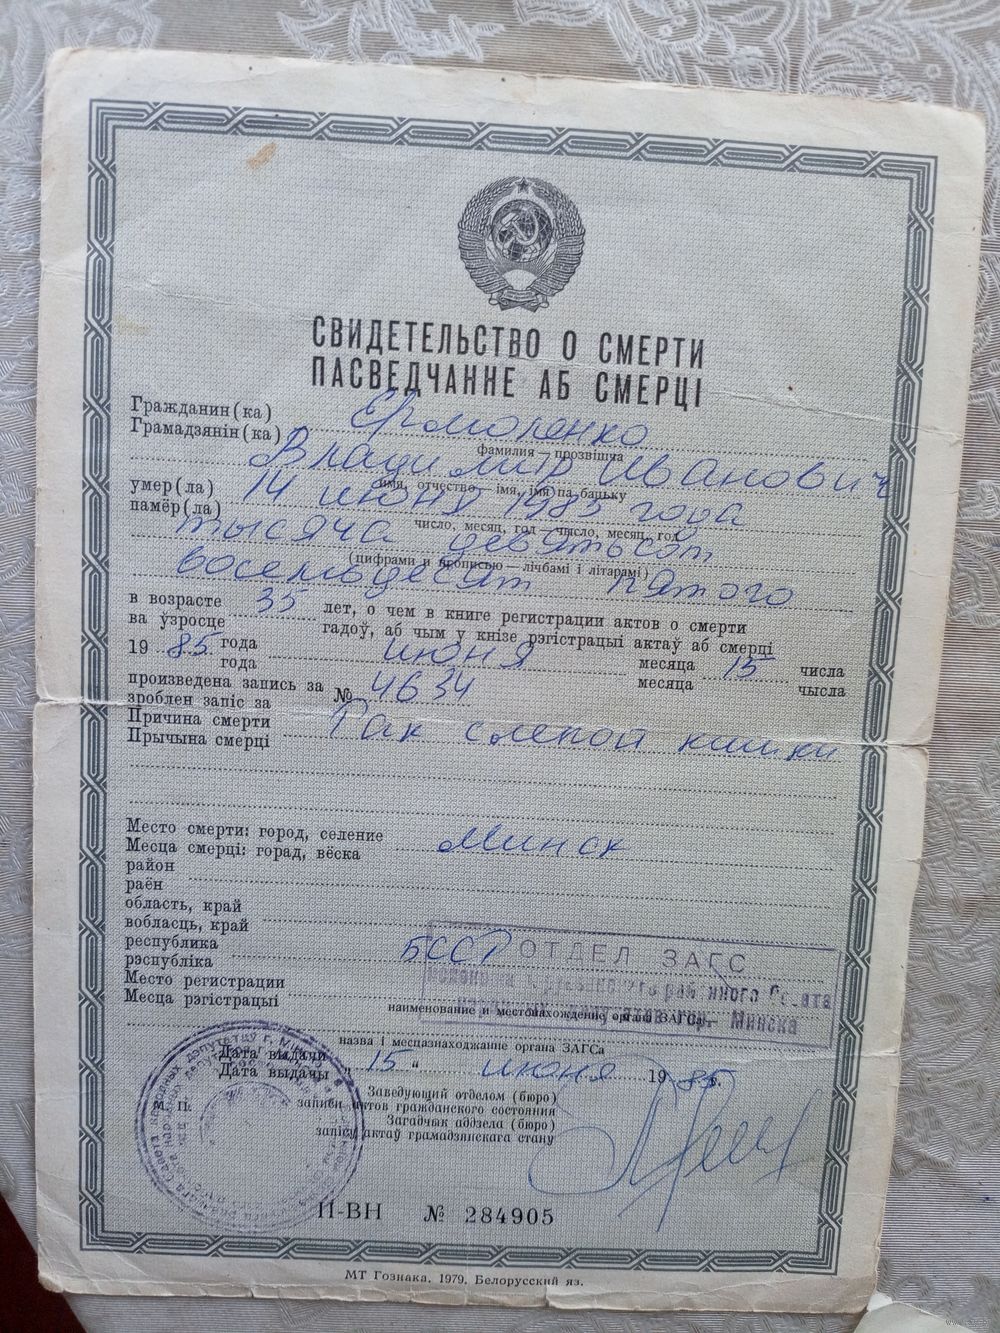 СВИДЕТЕЛЬСТВО О СМЕРТИ
ПАСВЕДЧАННЕ АБ СМЕРЦІ
Гражданин(ка) Ермоленко
Грамадзянін(ка)
фамилия — прозвішча
Владимир Иванович
имя, отчество — імя, імя па бацьку
умер(ла) 14 июня 1985 года
памёр(ла)
число, месяц, год — число, месяц, год
тысяча девятьсот
(цифрами и прописью — лічбамі і літарамі)
восемьдесят пятого
в возрасте 35 лет, о чем в книге регистрации актов о смерти
ва ўзросце гадоў, аб чым у кнізе рэгістрацыі актаў аб смерці
19 85 года июня месяца 15 числа
года месяца чысла
произведена запись за № 4634
зроблен запіс за
Причина смерти Рак слепой кишки
Прычына смерці
Место смерти: город, селение Минск
Месца смерці: горад, вёска
район
раён
область, край
вобласць, край
республика БССР
рэспубліка
ОТДЕЛ ЗАГС
Место регистрации
Месца рэгістрацыі
наименование и местонахождение органа ЗАГСа
Минска
назва і месцазнаходжанне органа ЗАГСа
Дата выдачи „15“ июня 1985г.
Дата выдачы
Заведующий отделом (бюро)
М. П. записи актов гражданского состояния
Загадчык аддзела (бюро)
запісу актаў грамадзянскага стану
II-ВН № 284905
МТ Гознака. 1979. Белорусский яз.